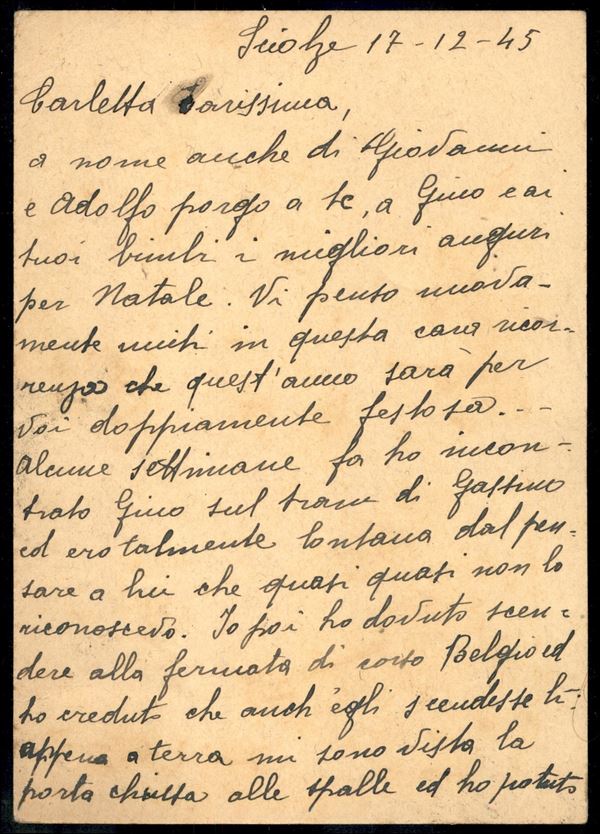 Sciolze 17-12-45
Carletta Carissima,
a nome anche di Giovanni
e Adolfo porgo a te, a Gino e ai
tuoi bimbi i migliori auguri
per Natale. Vi penso nuova-
mente uniti in questa cara ricor-
renza che quest'anno sarà per
voi doppiamente festosa...
Alcune settimane fa ho incon-
trato Gino sul tram di Gassino
ed ero talmente lontana dal pen-
sare a lui che quasi quasi non lo
riconoscevo. Io poi ho dovuto scen-
dere alla fermata di corso Belgio ed
ho creduto che anch'egli scendesse lì:
appena a terra mi sono vista la
porta chiusa alle spalle ed ho potuto